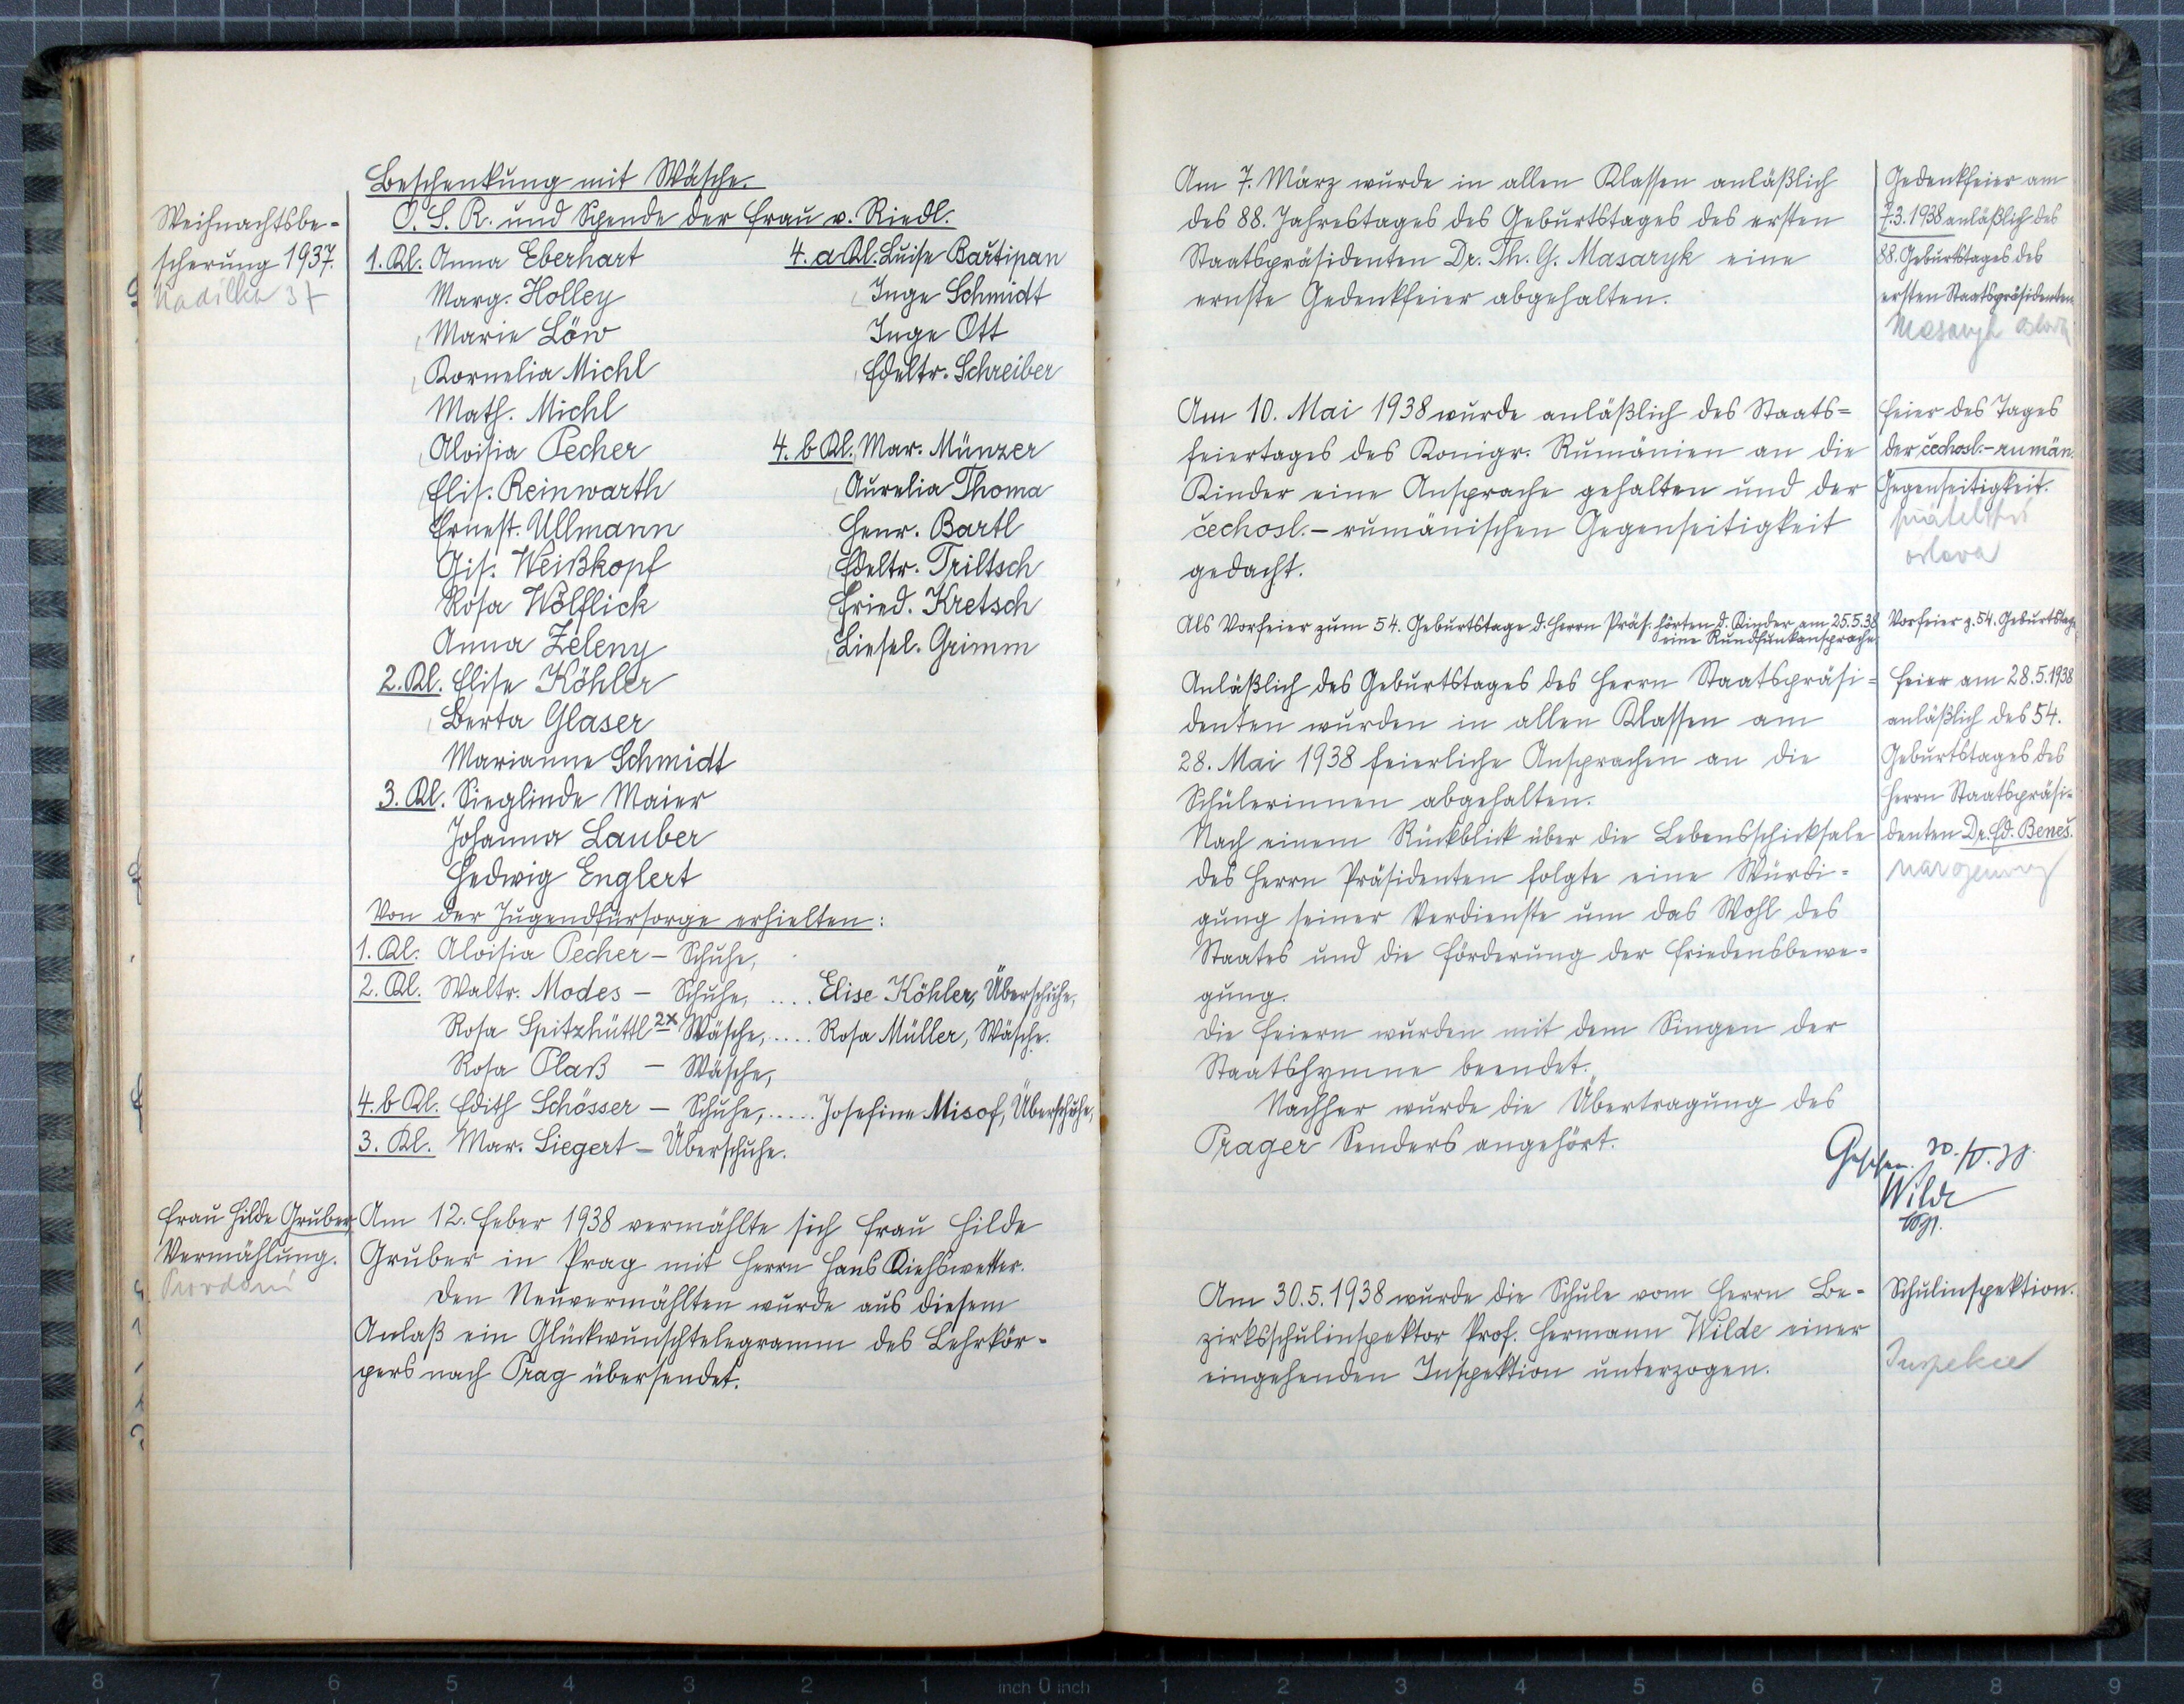 Beschenkung mit Wäsche.
O. S. R. und Spende der Frau v. Riedl.
Weihnachtsbe-
scherung 1937.
Nadílka 37
1. Kl. Anna Eberhart
Marg. Holley
Marie Löw
Kornelia Michl
Math. Michl
Aloisia Pecher
Elis. Reinwarth
Ernest. Ullmann
Gis. Weißkopf
Rosa Wölflick
Anna Zeleny
2. Kl. Elise Köhler
Berta Glaser
Marianne Schmidt
3. Kl. Sieglinde Maier
Johanna Lauber
Hedwig Englert
4. a Kl. Luise Bartipan
Inge Schmidt
Inge Ott
Edeltr. Schreiber
4. b Kl. Mar. Münzer
Aurelia Thoma
Henr. Bartl
Edeltr. Triltsch
Fried. Kretsch
Liesel. Grimm
Von der Jugendfürsorge erhielten:
1. Kl. Aloisia Pecher – Schuhe,
2. Kl. Waltr. Modes – Schuhe, .... Elise Köhler, Überschuhe,
Rosa Spitzhüttl 2x Wäsche, .... Rosa Müller, Wäsche.
Rosa Plaß – Wäsche,
4. b Kl. Edith Schösser – Schuhe, ..... Josefine Misof, Überschuhe,
3. Kl. Mar. Siegert – Überschuhe.
Frau Hilde Gruber,
Vermählung.
Am 12. Feber 1938 vermählte sich Frau Hilde
Gruber in Prag mit Herrn Hans Kiehswetter.
Den Neuvermählten wurde aus diesem
Anlaß ein Glückwunschtelegramm des Lehrkör-
pers nach Prag übersendet.
Am 7. März wurde in allen Klassen anläßlich
des 88. Jahrestages des Geburtstages des ersten
Staatspräsidenten Dr. Th. G. Masaryk eine
ernste Gedenkfeier abgehalten.
Gedenkfeier am
7.3.1938 anläßlich des
88. Geburtstages des
ersten Staatspräsidenten
Masaryk oslava
Am 10. Mai 1938 wurde anläßlich des Staats=
feiertages des Königr. Rumänien an die
Kinder eine Ansprache gehalten und der
čechosl.-rumänischen Gegenseitigkeit
gedacht.
Feier des Tages
der čechosl.-rumän.
Gegenseitigkeit.
přátelství
oslava
Als Vorfeier zum 54. Geburtstage d. Herrn Präs. hörten d. Kinder am 25.5.38
eine Rundfunkansprache
Vorfeier z. 54. Geburtstage
Anläßlich des Geburtstages des Herrn Staatspräsi=
denten wurden in allen Klassen am
28. Mai 1938 feierliche Ansprachen an die
Schülerinnen abgehalten.
Nach einem Rückblick über die Lebensschicksale
des Herrn Präsidenten folgte eine Würdi=
gung seiner Verdienste um das Wohl des
Staates und die Förderung der Friedensbewe=
gung.
Die Feiern wurden mit dem Singen der
Staatshymne beendet.
Nachher wurde die Übertragung des
Prager Senders angehört.
Feier am 28.5.1938
anläßlich des 54.
Geburtstages des
Herrn Staatspräsi-
denten Dr. Ed. Beneš.
narozeniny
Gesehen 30./V.38.
Wilde
Am 30.5.1938 wurde die Schule vom Herrn Be-
zirksschulinspektor Prof. Hermann Wilde einer
eingehenden Inspektion unterzogen.
Schulinspektion.
Inspekce
8 7 6 5 4 3 2 1 inch 0 inch 1 2 3 4 5 6 7 8 9